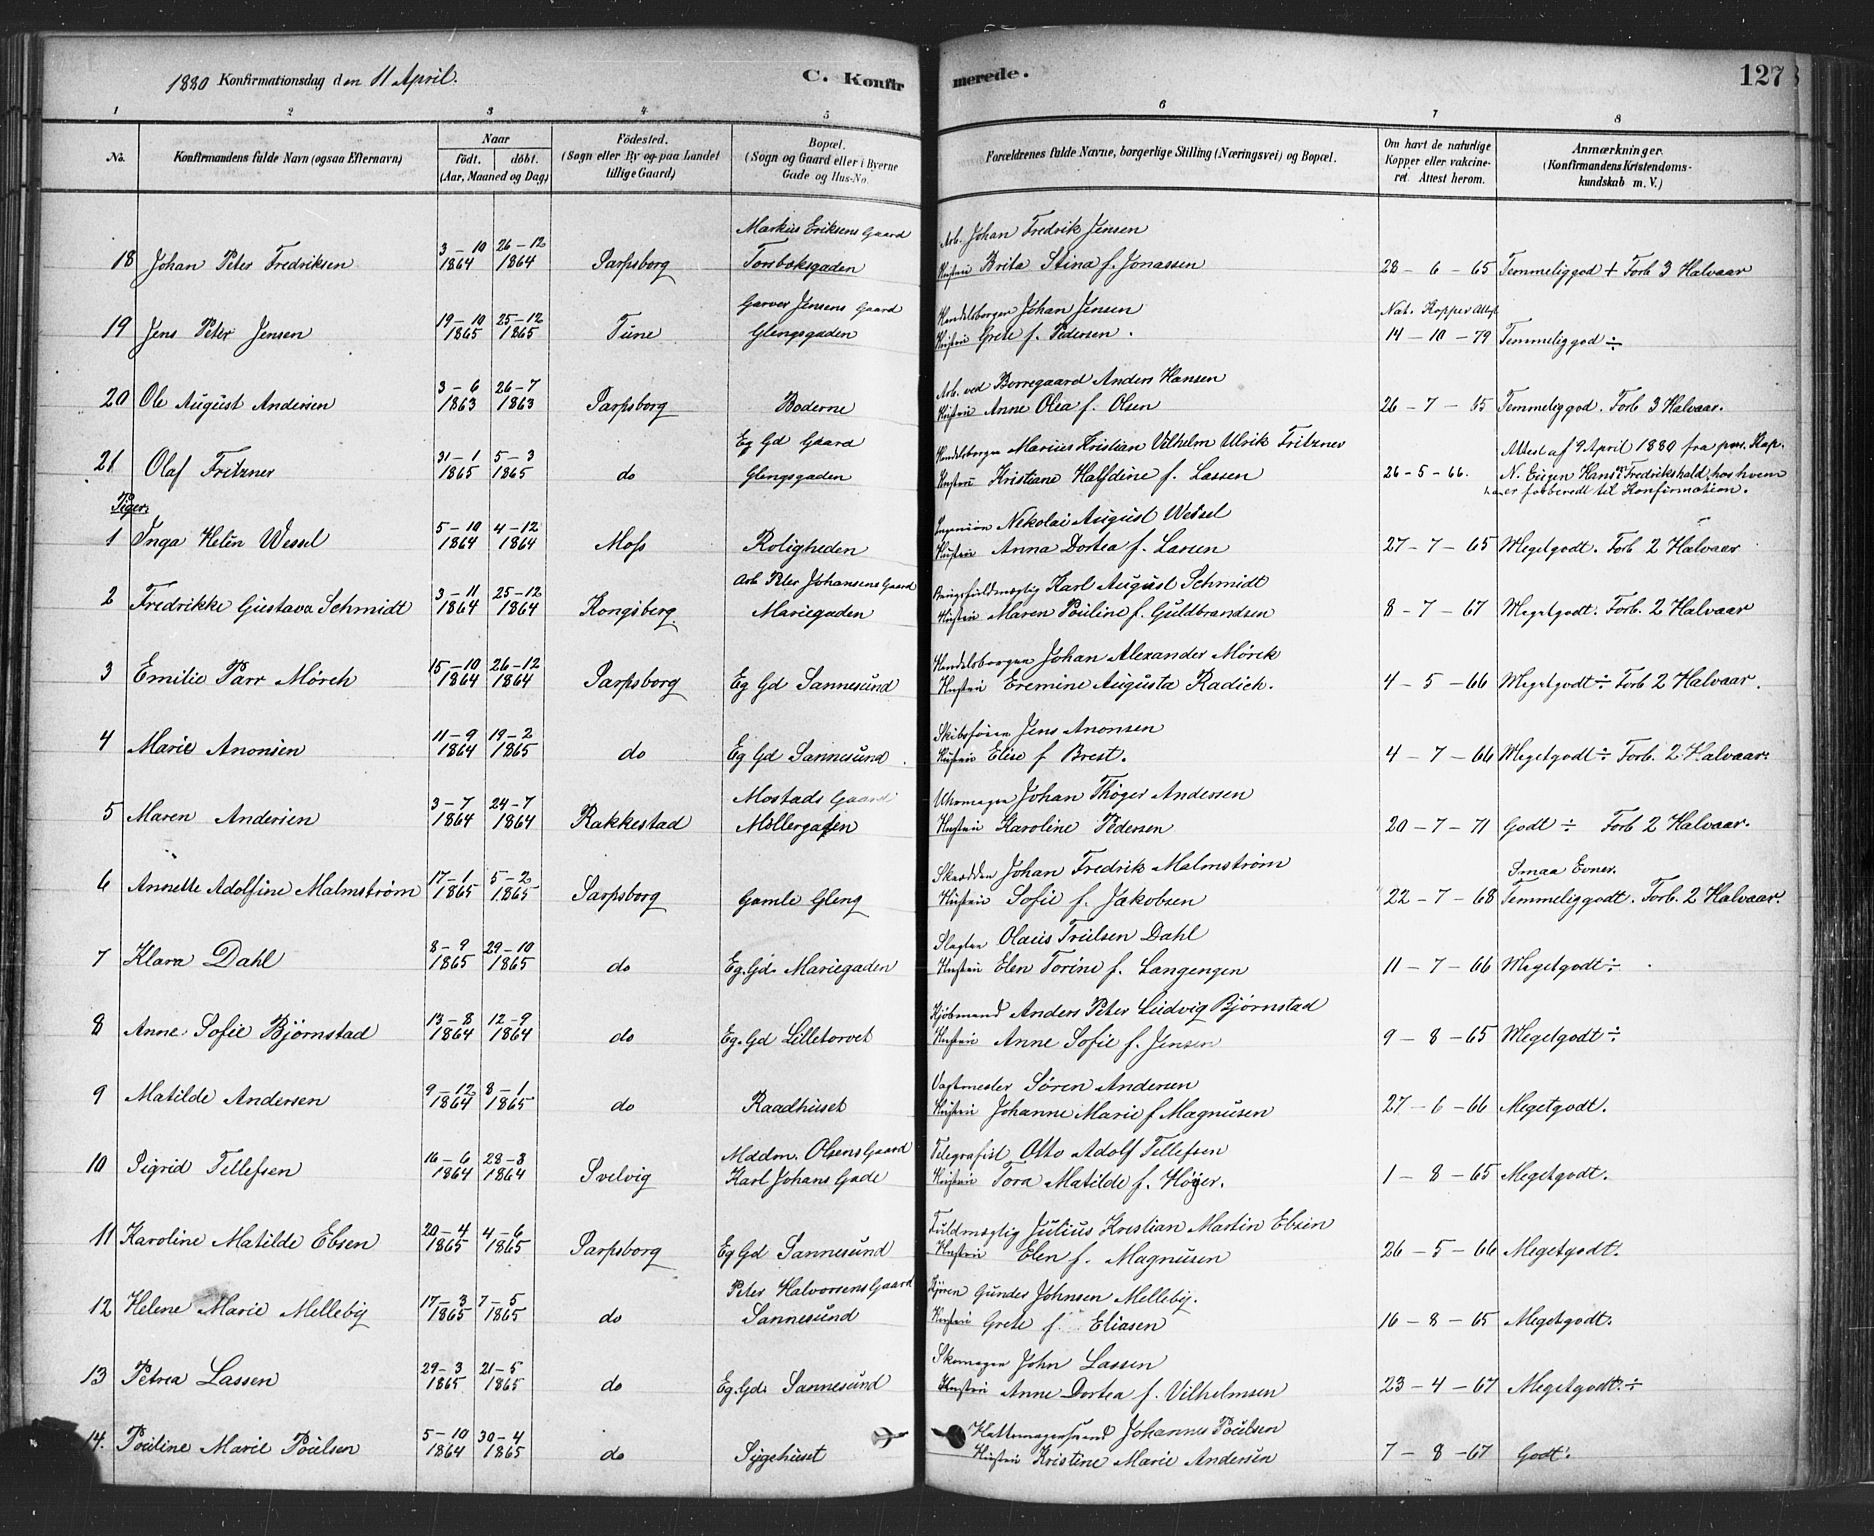 1880 Konfirmationsdag den 11 April.
C. Konfir
merede.
127
1 2 3 4 5 6 7 8
No. Konfirmandens fulde Navn (ogsaa Efternavn)
Naar
født. døbt.
(Aar, Maaned og Dag)
Födested.
(Sogn eller By og paa Landet
tillige Gaard)
Bopæl.
(Sogn og Gaard eller i Byerne
Gade og Hus-No.
Forældrenes fulde Navne, borgerlige Stilling (Næringsvei) og Bopæl.
Om havt de naturlige
Kopper eller vakcine-
ret. Attest herom.
Anmærkninger.
(Konfirmandens Kristendoms-
kundskab m. V.)
Markus Eriksens Gaard Arb. Johan Fredrik Jensen
18 Johan Peter Fredriksen 3-10 1864 26-12 1864 Sarpsborg Torsboksgaden Hustru Brita Stina f. Jonassen 28-6-65 Temmeliggod + Forb 3 Halvaar
Garver Jensens Gaard Handelsborger Johan Jensen Nat. Kopper Attest
19 Jens Peter Jensen 19-10 1865 25-12 1865 Tune Glengsgaden Hustru Grete f. Pedersen. 14-10-79 Temmeliggod ÷
Arb. ved Borregaard Anders Hansen
20 Ole August Andersen 3-6 1863 26-7 1863 Sarpsborg Boderne Hustru Anne Olea f. Olsen 26-7-65 Temmeliggod. Forb 3 Halvaar.
Eg Gd Gaard Handelsborger Marius Kristian Vilhelm Ulrik Fritzner Attest af 9 April 1880 fra pers. Kap.
21 Olaf Fritzner 31-1 1865 5-3 1865 do Glengsgaden Hustru Kristiane Halfdine f. Lassen 26-5-66. N. Eugen Hansn Fredrikshald, hos hvem
han er forberedt til Konfirmation.
Piger.
Ingeniør Nikolai August Wessel
1 Inga Helen Wessel 5-10 1864 4-12 1864 Moss Roligheden Hustru Anna Dortea f. Larsen 27-7-65 Megetgodt. Forb 2 Halvaar
Arb Peter Johansens Gaard Brugsfuldmægtig Karl August Schmidt
2 Fredrikke Gustava Schmidt 3-11 1864 25-12 1864 Kongsberg Mariegaden Hustru Maren Pouline f. Guldbrandsen 8-7-67 Megetgodt. Forb. 2 Halvaar
Handelsborger Johan Alexander Mörch
3 Emilie Parr Mörch 15-10 1864 26-12 1864 Sarpsborg Eg Gd Sannesund Hustru Eremine Augusta Radich. 4-5-66 Megetgodt ÷ Forb 2 Halvaar.
Skibsförer Jens Anonsen
4 Marie Anonsen 11-9 1864 19-2 1865 do Eg Gd Sannesund. Hustru Elise f Brest. 4-7-66 Megetgodt ÷ Forb. 2 Halvaar.
Mostads Gaard Uhrmager Johan Thöger Andersen
5 Maren Andersen 3-7 1864 24-7 1864 Rakkestad Möllergaden Hustru Karoline Pedersen 20-7-71 Godt ÷ Forb 2 Halvaar.
Skrædder Johan Fredrik Malmström Smaa Evner.
6 Annette Adolfine Malmström 17-1 1865 5-2 1865 Sarpsborg Gamle Gleng Hustru Sofie f. Jakobsen 22-7-68 Temmeliggodt. Forb. 2 Halvaar.
Slagter Olaus Trulsen Dahl
7 Klara Dahl 8-9 1865 29-10 1865 do Eg. Gd. Mariegaden Hustru Elen Torine f. Langengen 11-7-66 Megetgodt ÷
Kjöbmand Anders Peter Ludvig Björnstad
8 Anne Sofie Björnstad 13-8 1864 12-9 1864 do Eg. Gd Lilletorvet Hustru Anne Sofie f. Jensen 9-8-65 Megetgodt ÷
Vagtmester Sören Andersen
9 Matilde Andersen 9-12 1864 8-1 1865 do Raadhuset Hustru Johanne Marie f Magnusen 27-6-66 Megetgodt.
Mddm. Olsens Gaard Telegrafist Otto Adolf Tellefsen
10 Sigrid Tellefsen 16-6 1864 28-8 1864 Svelvig Karl Johans Gade Hustru Tora Matilde f. Höyer. 1-8-65 Megetgodt.
Fuldmægtig Julius Kristian Martin Ebsen
11 Karoline Matilde Ebsen 20-4 1865 4-6 1865 Sarpsborg Eg Gd Sannesund Hustru Elen f. Magnusen 26-5-66 Megetgodt.
Peter Halvorsens Gaard Gunder Johnsen Melleby.
12 Helene Marie Melleby 17-3 1865 7-5 1865 do Sannesund Hustru Grete f. Eliasen 16-8-65 Megetgodt.
Skomager John Lassen
13 Petrea Lassen 29-3 1865 21-5 1865 do Eg. Gd. Sannesund Hustru Anne Dortea f. Vilhelmsen 23-4-67 Megetgodt. ÷
Hattemagersvend Johannes Poulsen
14. Pouline Marie Poulsen 5-10 1864 30-4 1865 do Sygehuset Hustru Kristine Marie Andersen 7-8-67 Godt.